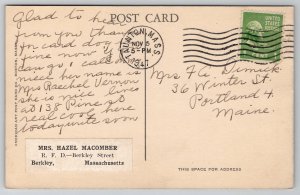 POST CARD
Glad to hear
from you thank
in card do
time now
I call
niece her name is
Mrs Rachel Vernon
she is nice lives
at 138 Pine st
real cool here
today write soon
TAUNTON, MASS.
NOV 5
5-PM
1947
Mrs F. C. Dimick
36 Winter St
Portland 4
Maine.
MRS. HAZEL MACOMBER
R. F. D.—Berkley Street
Berkley, Massachusetts
THIS SPACE FOR ADDRESS